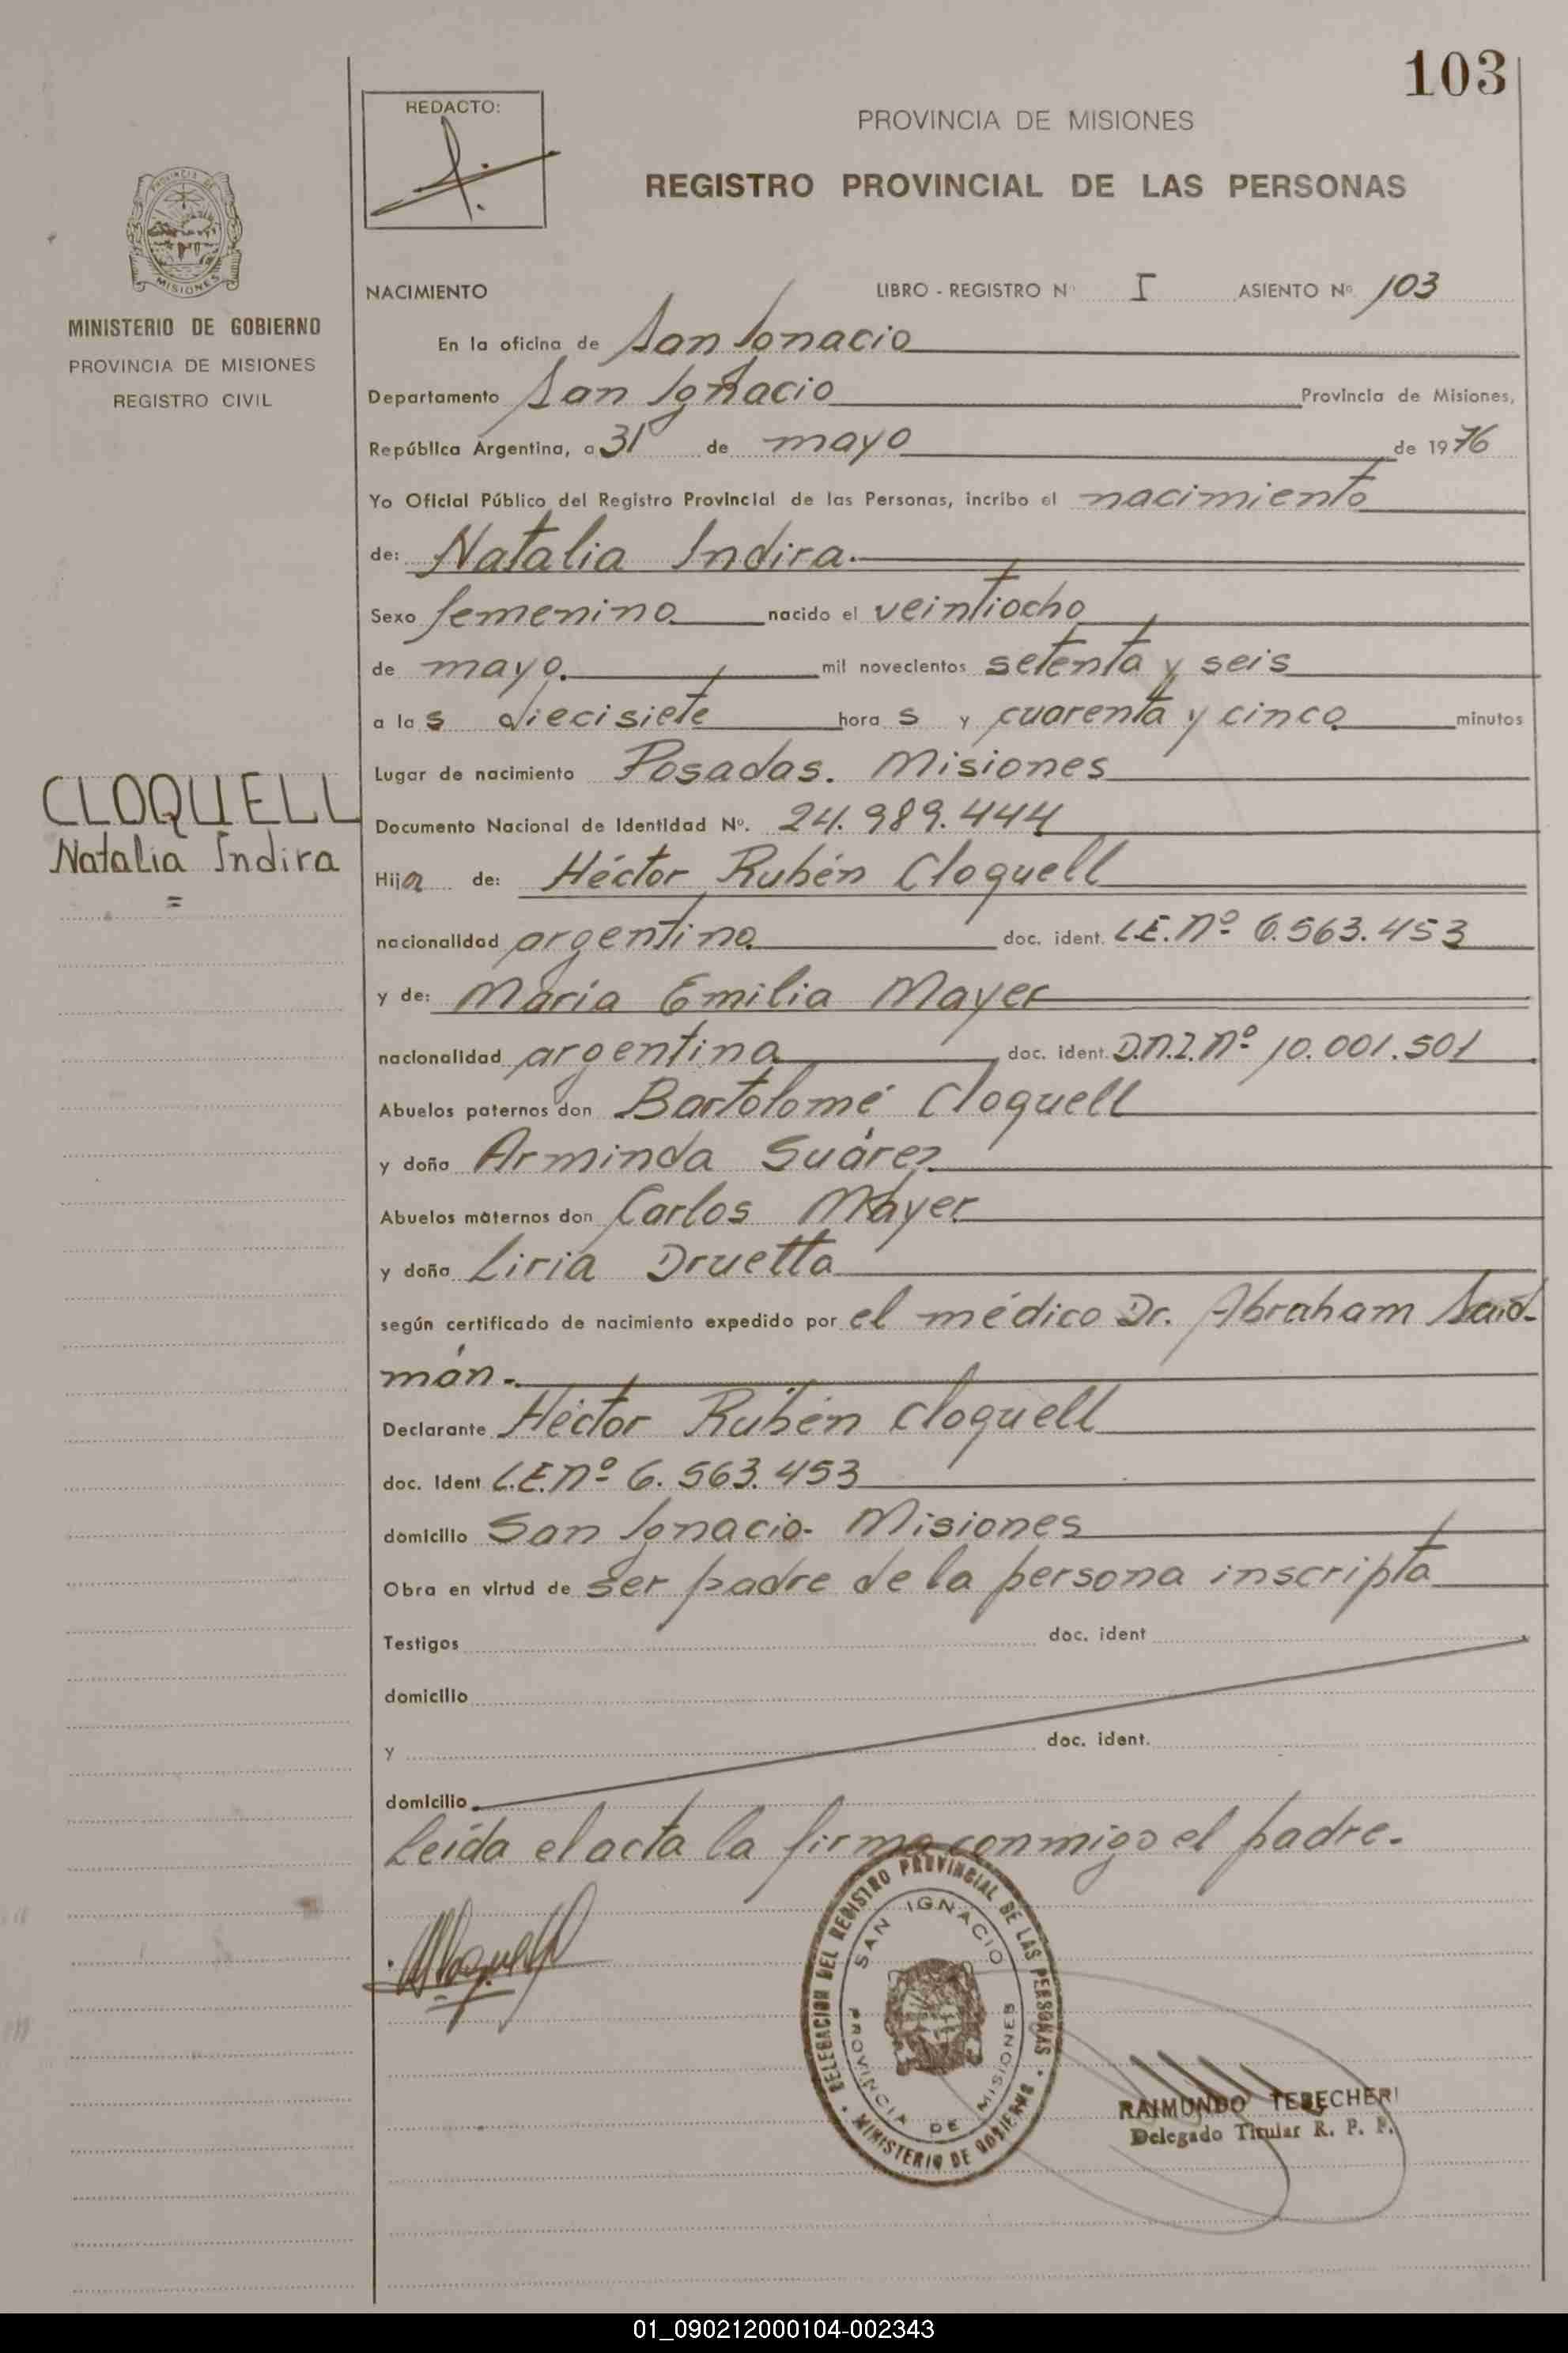 103
REDACTO:
PROVINCIA DE MISIONES
REGISTRO PROVINCIAL DE LAS PERSONAS
PROVINCIA DE
MISIONES
MINISTERIO DE GOBIERNO
PROVINCIA DE MISIONES
REGISTRO CIVIL
NACIMIENTO LIBRO - REGISTRO N° I ASIENTO Nº 103
En la oficina de San Ignacio
Departamento San Ignacio Provincia de Misiones,
República Argentina, a 31 de mayo de 1976
Yo Oficial Público del Registro Provincial de las Personas, incribo el nacimiento
de: Natalia Indira.
Sexo femenino nacido el veintiocho
de mayo. mil novecientos setenta y seis
a las diecisiete horas y cuarenta y cinco minutos
Lugar de nacimiento Posadas. Misiones
CLOQUELL
Natalia Indira
=
Documento Nacional de Identidad Nº. 24.989.444
Hija de: Héctor Rubén Cloquell
nacionalidad argentina doc. ident. L.E. Nº 6.563.453
y de: María Emilia Mayer
nacionalidad argentina doc. ident. D.N.I. Nº 10.001.501
Abuelos paternos don Bartolomé Cloquell
y doña Arminda Suárez
Abuelos maternos don Carlos Mayer
y doña Liria Druetta
según certificado de nacimiento expedido por el médico Dr. Abraham Said-
mán.
Declarante Héctor Rubén Cloquell
doc. Ident L.E. Nº 6.563.453
domicilio San Ignacio. Misiones
Obra en virtud de ser padre de la persona inscripta
Testigos doc. ident
domicilio
y doc. ident.
domicilio
Leída el acta la firma conmigo el padre.
DELEGACION DEL REGISTRO PROVINCIAL DE LAS PERSONAS
SAN IGNACIO
PROVINCIA DE MISIONES
MINISTERIO DE GOBIERNO
RAIMUNDO TEBECHERI
Delegado Titular R. P. P.
01_090212000104-002343